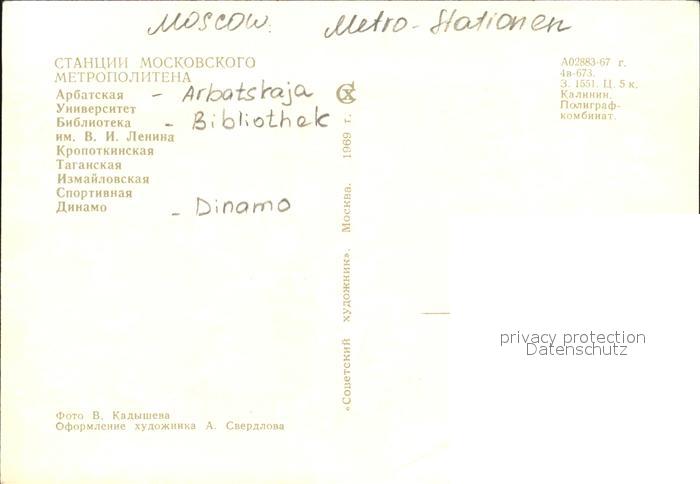 Moscow. Metro-Stationen
СТАНЦИИ МОСКОВСКОГО
МЕТРОПОЛИТЕНА
Арбатская - Arbatskaja
Университет
Библиотека - Bibliothek
им. В. И. Ленина
Кропоткинская
Таганская
Измайловская
Спортивная
Динамо - Dinamo
Фото В. Кадышева
Оформление художника А. Свердлова
«Советский художник». Москва. 1969 г.
А02883-67 г.
4в-673.
З. 1551. Ц. 5 к.
Калинин.
Полиграф-
комбинат.
privacy protection
Datenschutz